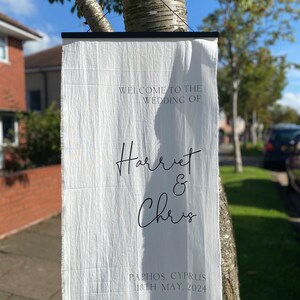 WELCOME TO THE
WEDDING OF
Harriet
&
Chris
PAPHOS, CYPRUS
18TH MAY, 2024